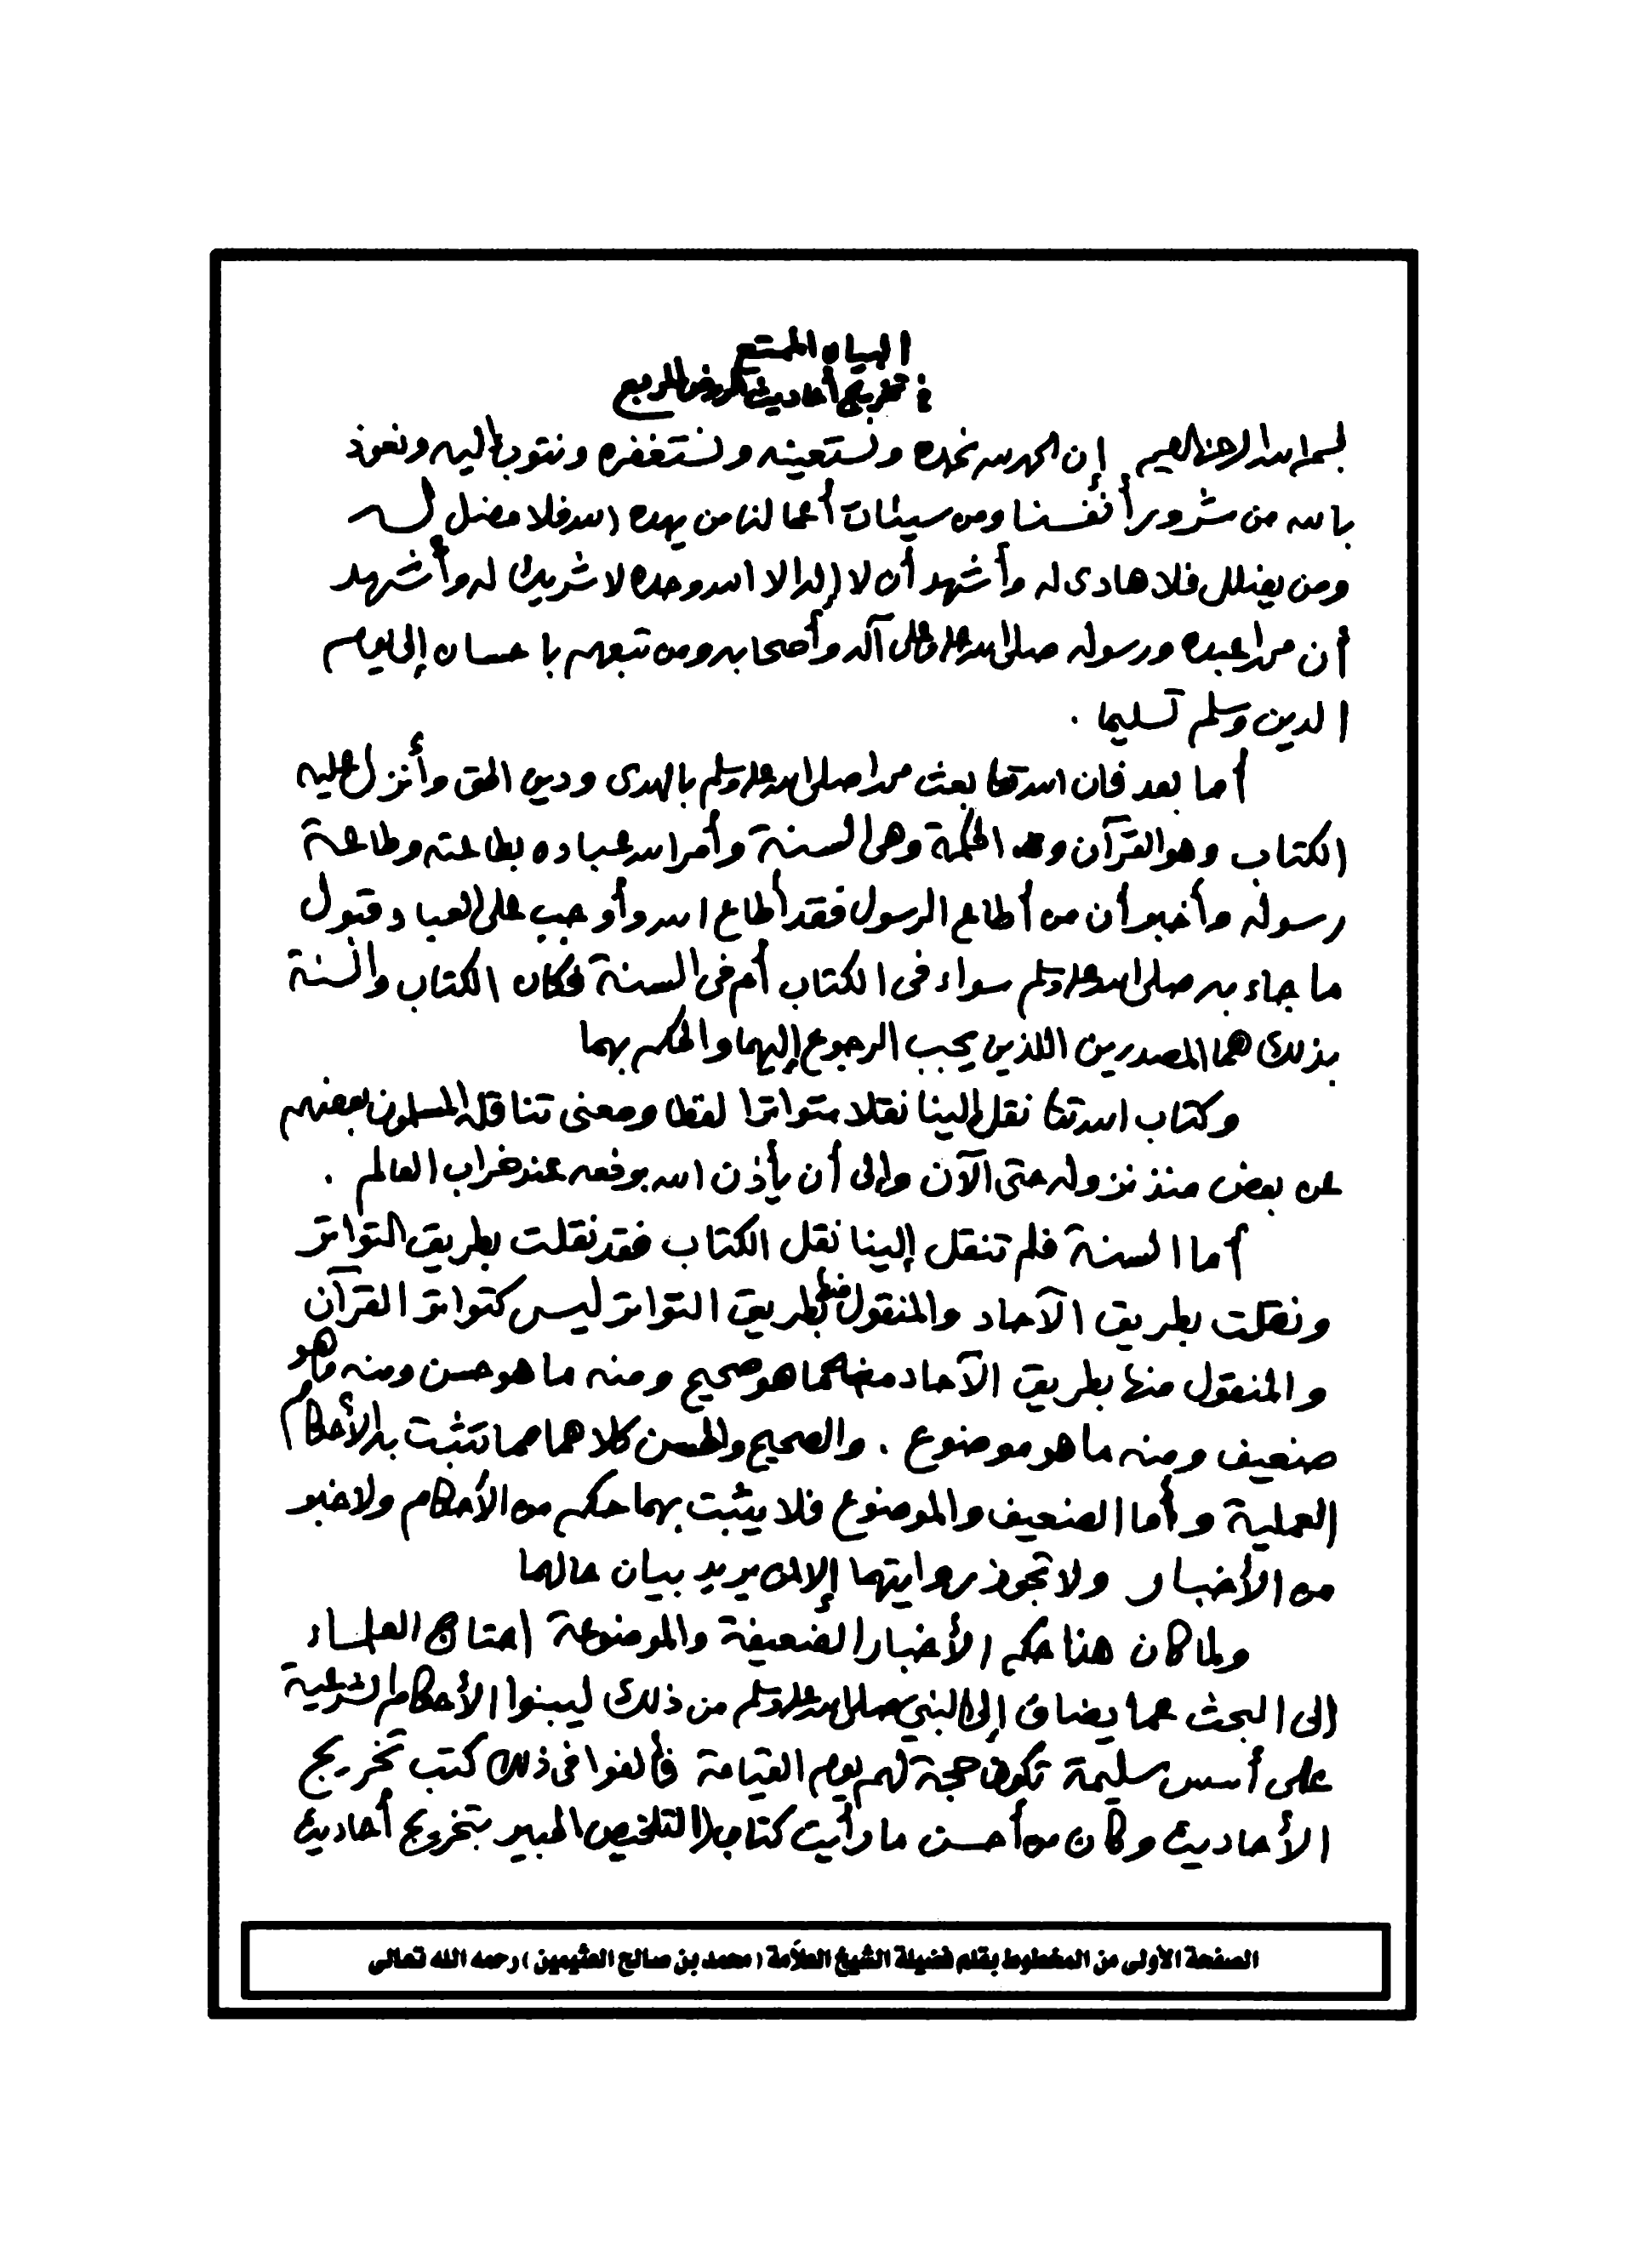 البيان الممتع
في تخريج أحاديث الروض المربع
بسم الله الرحمن الرحيم إن الحمد لله نحمده ونستعينه ونستغفره ونتوب إليه ونعوذ
بالله من شرور أنفسنا ومن سيئات أعمالنا من يهده الله فلا مضل له
ومن يضلل فلا هادى له وأشهد أن لا إله إلا الله وحده لا شريك له وأشهد
أن محمدا عبده ورسوله صلى الله عليه وعلى آله وأصحابه ومن تبعهم باحسان إلى يوم
الدين وسلم تسليما .
أما بعد فان الله تعالى بعث محمدا صلى الله عليه وسلم بالهدى ودين الحق وأنزل عليه
الكتاب وهو القرآن والحكمة وهى السنة وأمر الله عباده بطاعته وطاعة
رسوله وأخبر أن من أطاع الرسول فقد أطاع الله وأوجب على العباد قبول
ما جاء به صلى الله عليه وسلم سواء فى الكتاب أم فى السنة فكان الكتاب والسنة
بذلك هما المصدرين اللذين يجب الرجوع إليهما والحكم بهما
وكتاب الله تعالى نقل إلينا نقلا متواترا لفظا ومعنى تناقله المسلمون بعضهم
عن بعض منذ نزوله حتى الآن وإلى أن يأذن الله برفعه عند خراب العالم .
أما السنة فلم تنقل إلينا نقل الكتاب فقد نقلت بطريق التواتر
ونقلت بطريق الآحاد والمنقول منها بطريق التواتر ليس كتواتر القرآن
والمنقول منها بطريق الآحاد منه ما هو صحيح ومنه ما هو حسن ومنه ما هو
ضعيف ومنه ما هو موضوع . والصحيح والحسن كلاهما مما تثبت به الأحكام
العملية وأما الضعيف والموضوع فلا يثبت بهما حكم من الأحكام ولا خبر
من الأخبار ولا تجوز روايتهما إلا لمن يريد بيان حالهما
ولما كان هذا حكم الأخبار الضعيفة والموضوعة احتاج العلماء
إلى البحث عما يضاف إلى النبي صلى الله عليه وسلم من ذلك ليبنوا الأحكام الشرعية
على أسس سليمة تكون حجة لهم يوم القيامة فألفوا فى ذلك كتب تخريج
الأحاديث وكان من أحسن ما رأيت كتاب (التلخيص الحبير بتخريج أحاديث
الصفحة الأولى من المخطوط بقلم فضيلة الشيخ العلاّمة (محمد بن صالح العثيمين) رحمه الله تعالى